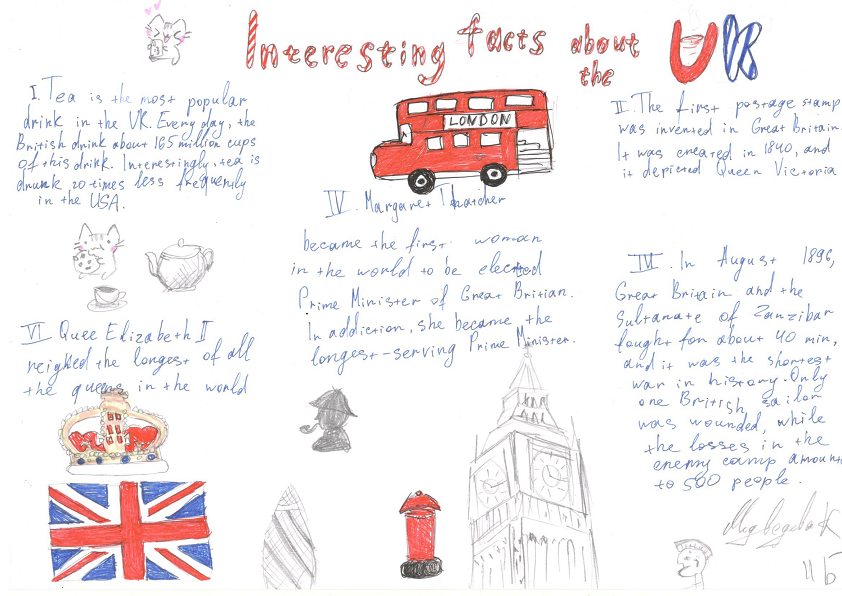 Interesting facts about the UK
I. Tea is the most popular
drink in the UK. Every day, the
British drink about 165 million cups
of this drink. Interestingly, tea is
drunk 20 times less frequently
in the USA.
LONDON
II. The first postage stamp
was invented in Great Britain.
It was created in 1840, and
it depicted Queen Victoria
IV. Margaret Thatcher
became the first woman
in the world to be elected
Prime Minister of Great Britian.
In addiction, she became the
longest-serving Prime Minister.
IV. In August 1896,
Great Britain and the
Sultanate of Zanzibar
fought for about 40 min,
and it was the shortest
war in history. Only
one British sailor
was wounded, while
the losses in the
enemy camp amount
to 500 people.
VI Quee Elizabeth II
reighed the longest of all
the queens in the world
11 Б